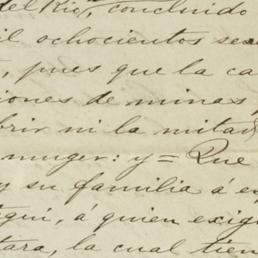 del Rio", concluido
il ochocientos se
, pues que la ca
iones de minas
brir ni la mitad
muger: y = Que
y su familia á e
igui, á quien exig
tara, la cual tien